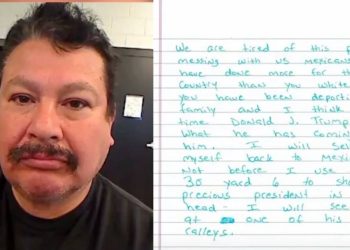 We are tired of this
messing with us mexicans
have done more for the
Country than you white
you have been deporti
family and I think
time Donald J. Trump
What he has coming
him. I will Sel
myself back to Mexi
Not before I use
30 yard 6 to sh
precious president in
head - I will see
at one of his
ralleys.